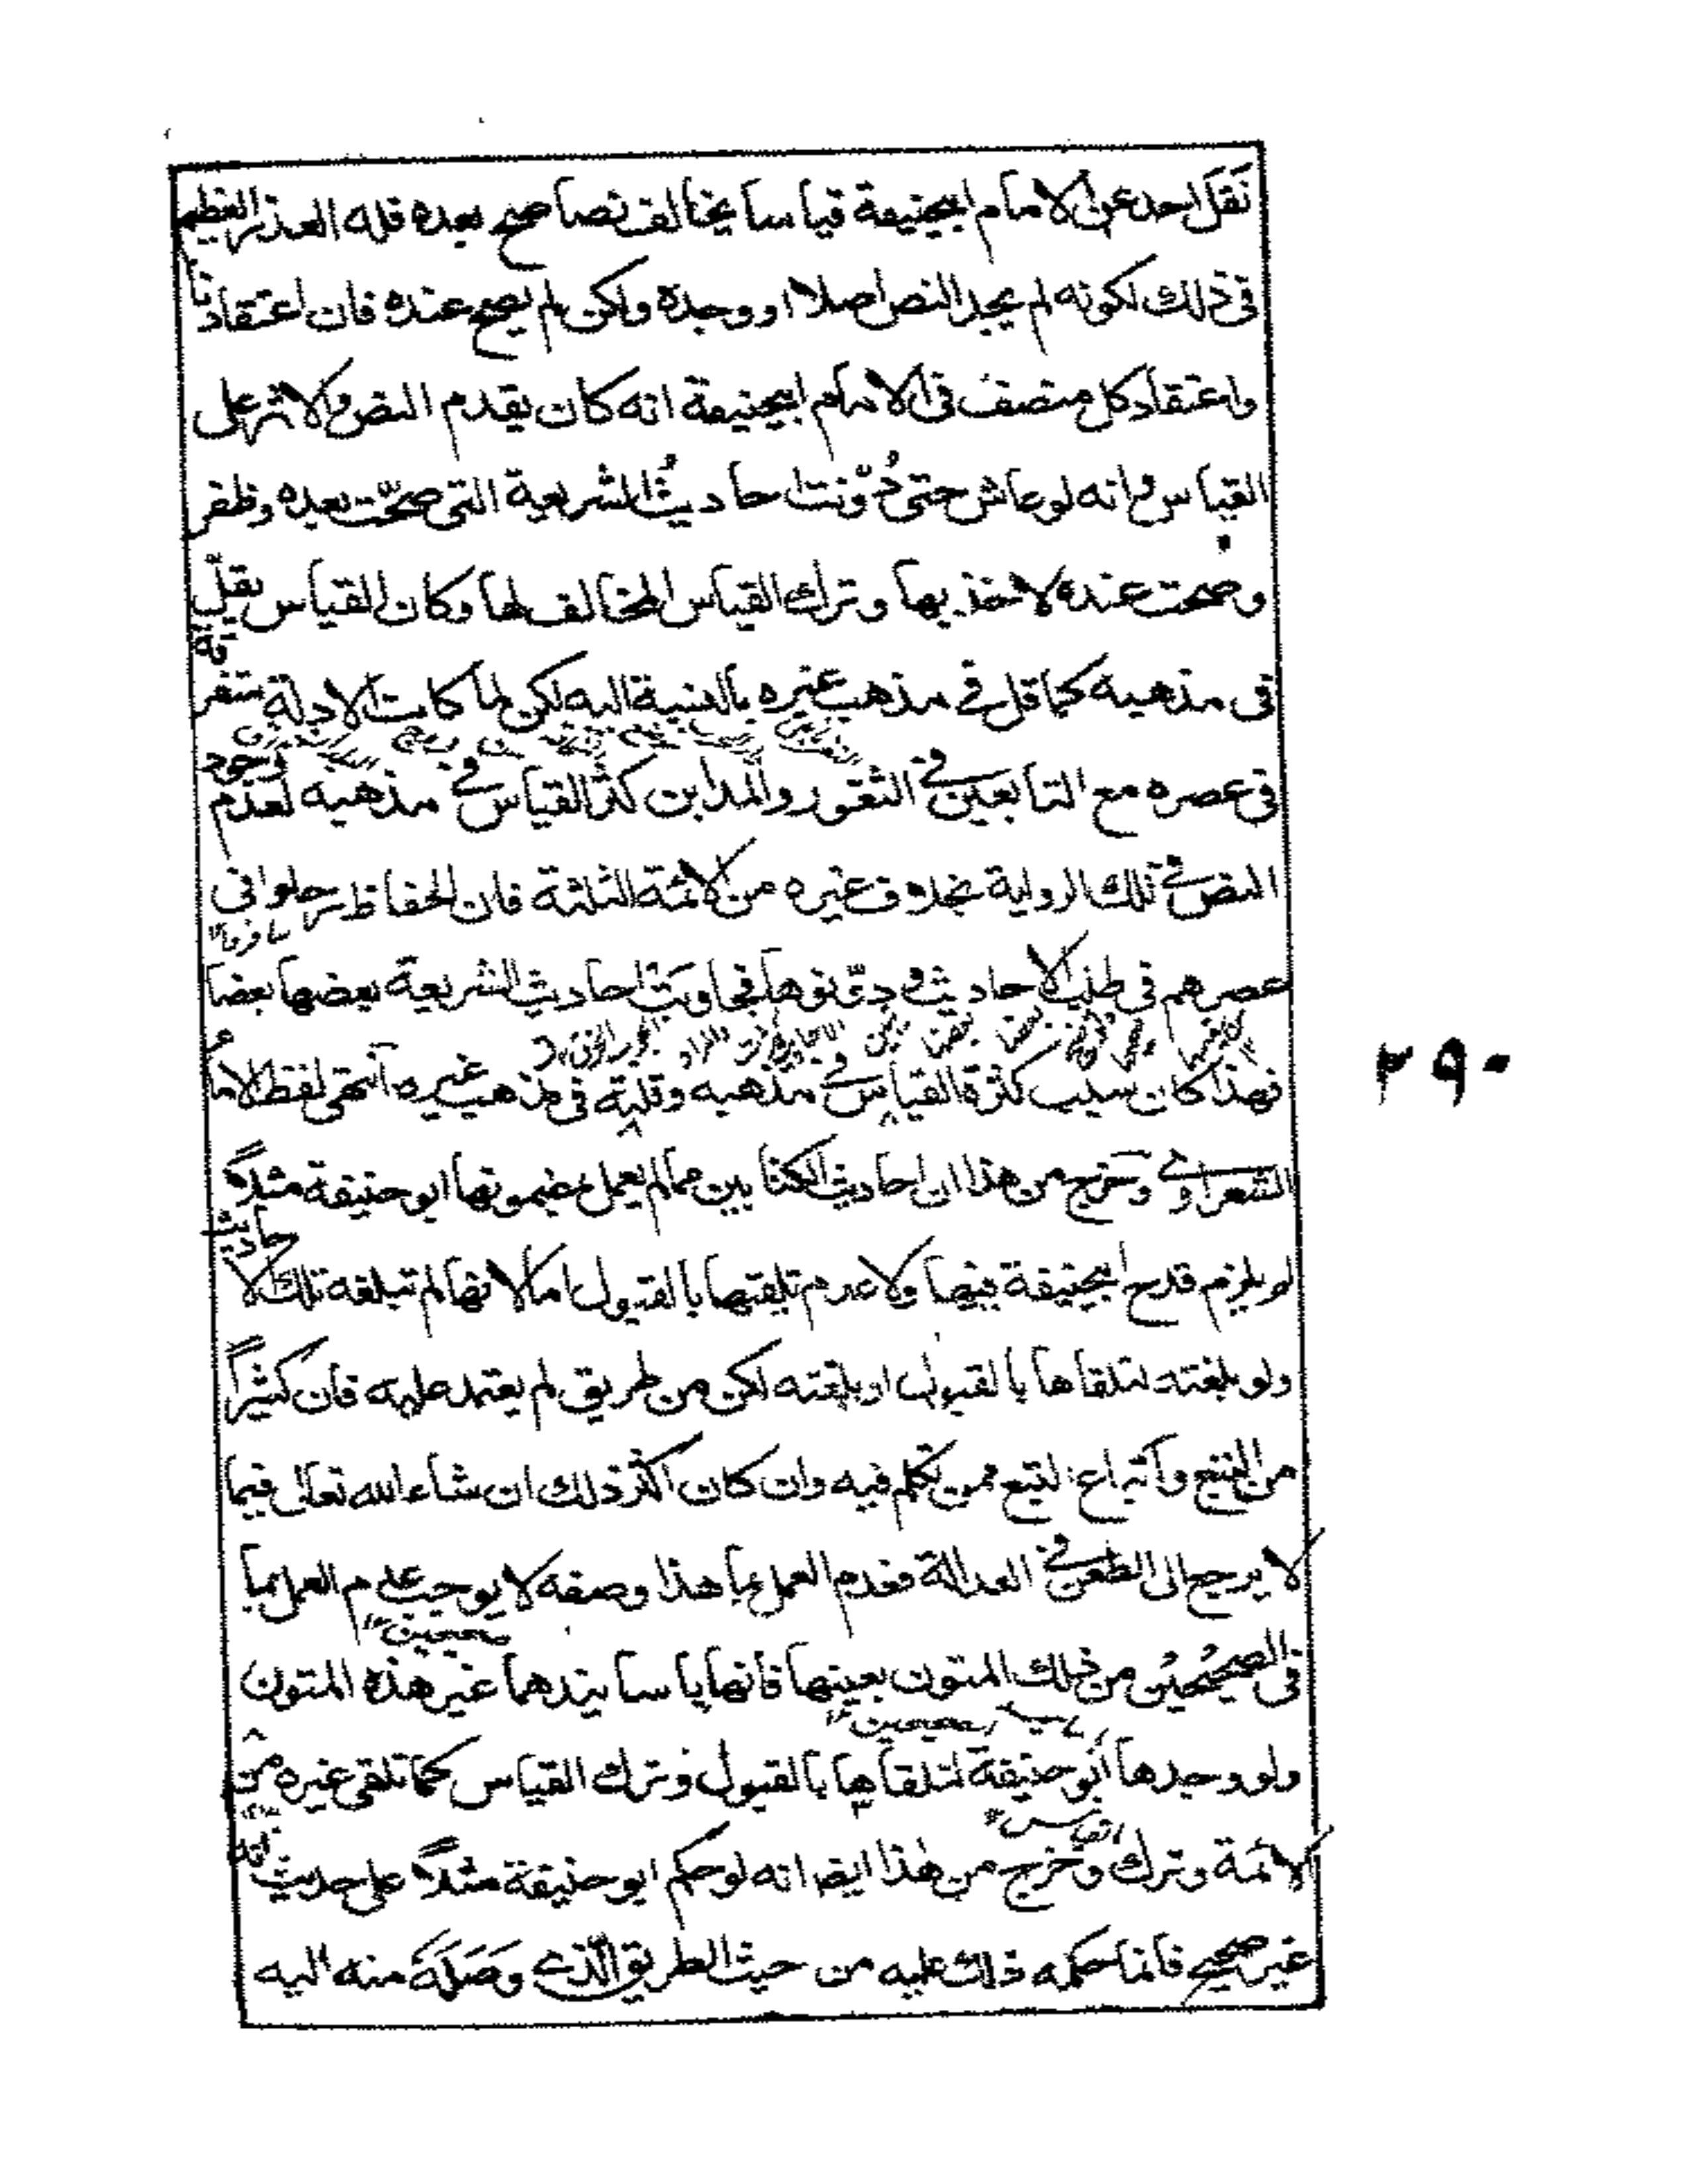 نقل احد عن الامام ابيحنيفة قياسا يخالف نصا صح بعده فله العذر العظيم
فى ذلك لكونه لم يجد النص اصلا او وجده ولكن لم يصح عنده فان اعتقادنا
واعتقاد كل منصف فى الامام ابيحنيفة انه كان يقدم النص والاثر على
القياس وانه لو عاش حتى دُوّنت احاديثُ الشريعة التى صحّت بعده وظفر
وصحت عنده لاخذ بها وترك القياس المخالف لها وكان القياس يقلّ
فى مذهبه كما قل فى مذهب غيره بالنسبة اليه لكن لما كانت الادلة متفرقة
فى عصره مع التابعين فى الثغور والمداين كثر القياس فى مذهبه لعدم وجود
النص فى تلك الرواية بخلاف غيره من الائمة الثلثة فان الحفاظ رحلوا فى
عصرهم فى طلب الاحاديث و دوّنوها فجاوبت احاديث الشريعة بعضها بعضا
فهذا كان سبب كثرة القياس فى مذهبه وقلته فى مذهب غيره انتهى لفظ الامام
الشعراوى وخرج من هذا ان احاديث الكتابين مما لم يعمل بمضمونها ابو حنيفة مثلاً
لو يلزم قدح ابيحنيفة فيها ولا عدم تلقيها بالقبول اما لانها لم تبلغه تلك الاحاديث
ولو بلغته لتلقاها بالقبول او بلغته لكن من طريق لم يعتمد عليه فان كثيراً
من التبع واتباع التبع ممن تكلم فيه وان كان اكثر ذلك ان شاء الله تعالى فيما
لا يرجع الى الطعن فى العدالة فعدم العمل بما هذا وصفه لا يوجب عدم العمل بما
فى الصحيحين من تلك المتون بعينها فانها باسانيدهما غير هذه المتون
ولو وجدها ابو حنيفة لتلقاها بالقبول وترك القياس كما تلقى غيره من
الائمة وترك وخرج من هذا ايضا انه لو حكم ابو حنيفة مثلاً على حديث انه
غير صحيح فانما حكمه ذلك عليه من حيث الطريق الّذى وَصَلَهَ منه اليه
٢٩٠